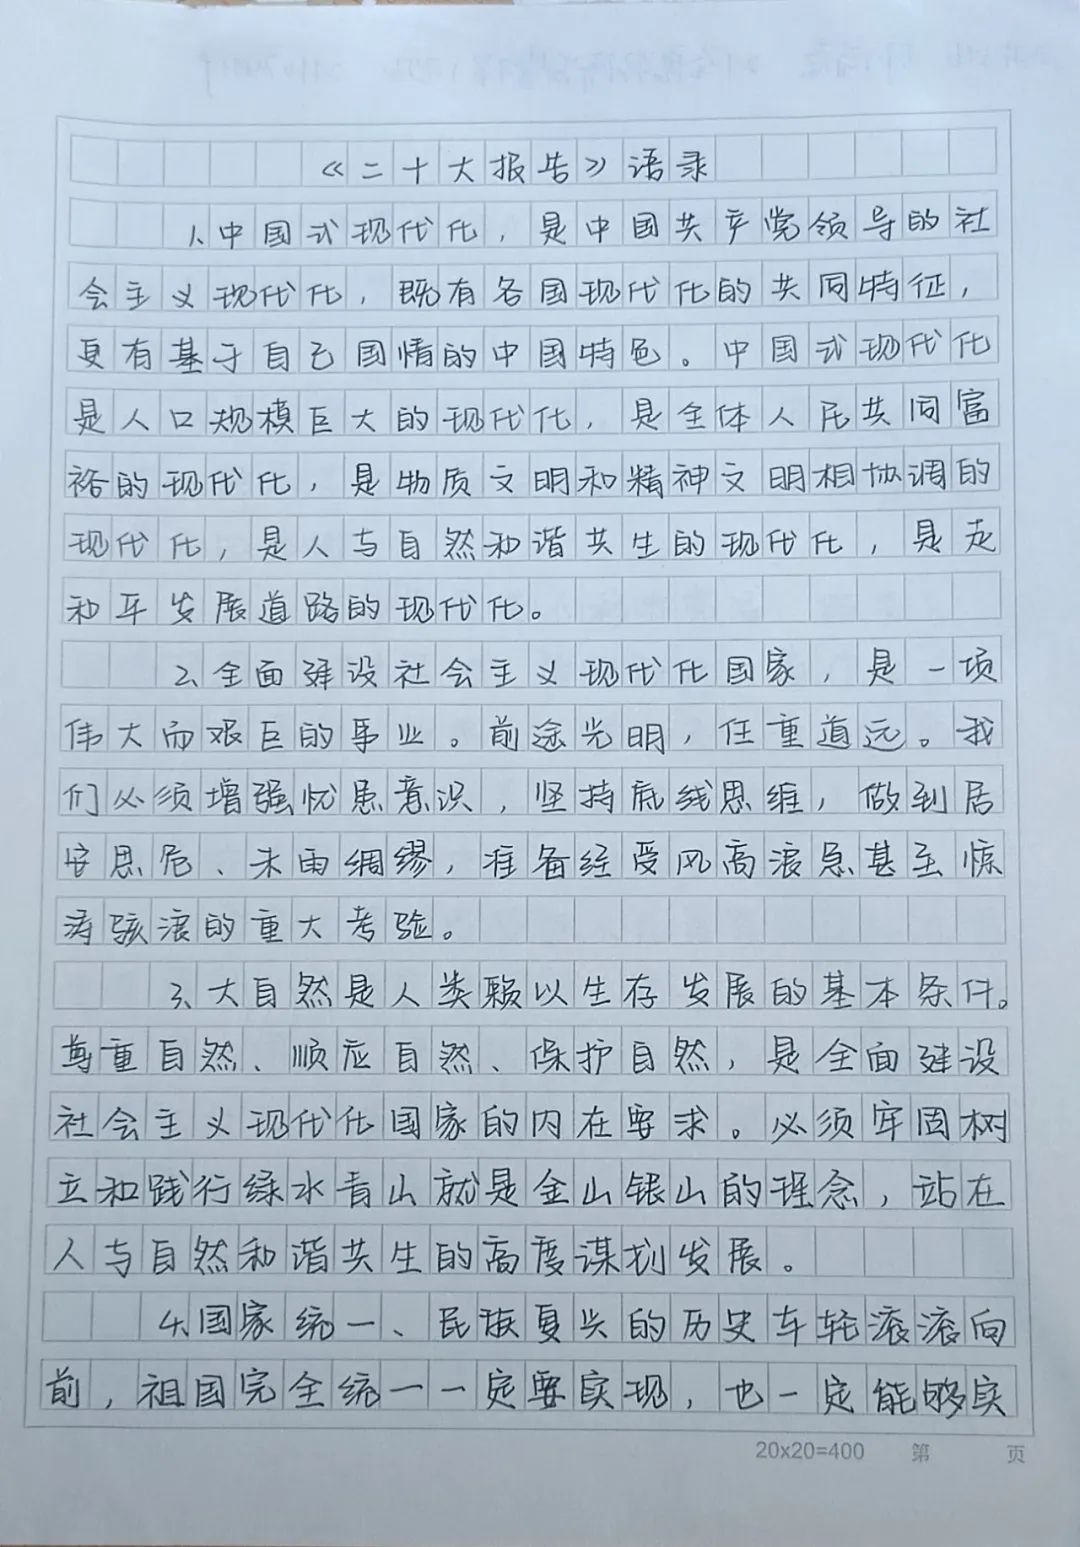 《二十大报告》语录
1、中国式现代化，是中国共产党领导的社
会主义现代化，既有各国现代化的共同特征，
更有基于自己国情的中国特色。中国式现代化
是人口规模巨大的现代化，是全体人民共同富
裕的现代化，是物质文明和精神文明相协调的
现代化，是人与自然和谐共生的现代化，是走
和平发展道路的现代化。
2、全面建设社会主义现代化国家，是一项
伟大而艰巨的事业。前途光明，任重道远。我
们必须增强忧患意识，坚持底线思维，做到居
安思危、未雨绸缪，准备经受风高浪急甚至惊
涛骇浪的重大考验。
3、大自然是人类赖以生存发展的基本条件。
尊重自然、顺应自然、保护自然，是全面建设
社会主义现代化国家的内在要求。必须牢固树
立和践行绿水青山就是金山银山的理念，站在
人与自然和谐共生的高度谋划发展。
4、国家统一、民族复兴的历史车轮滚滚向
前，祖国完全统一一定要实现，也一定能够实
20x20=400 第 页